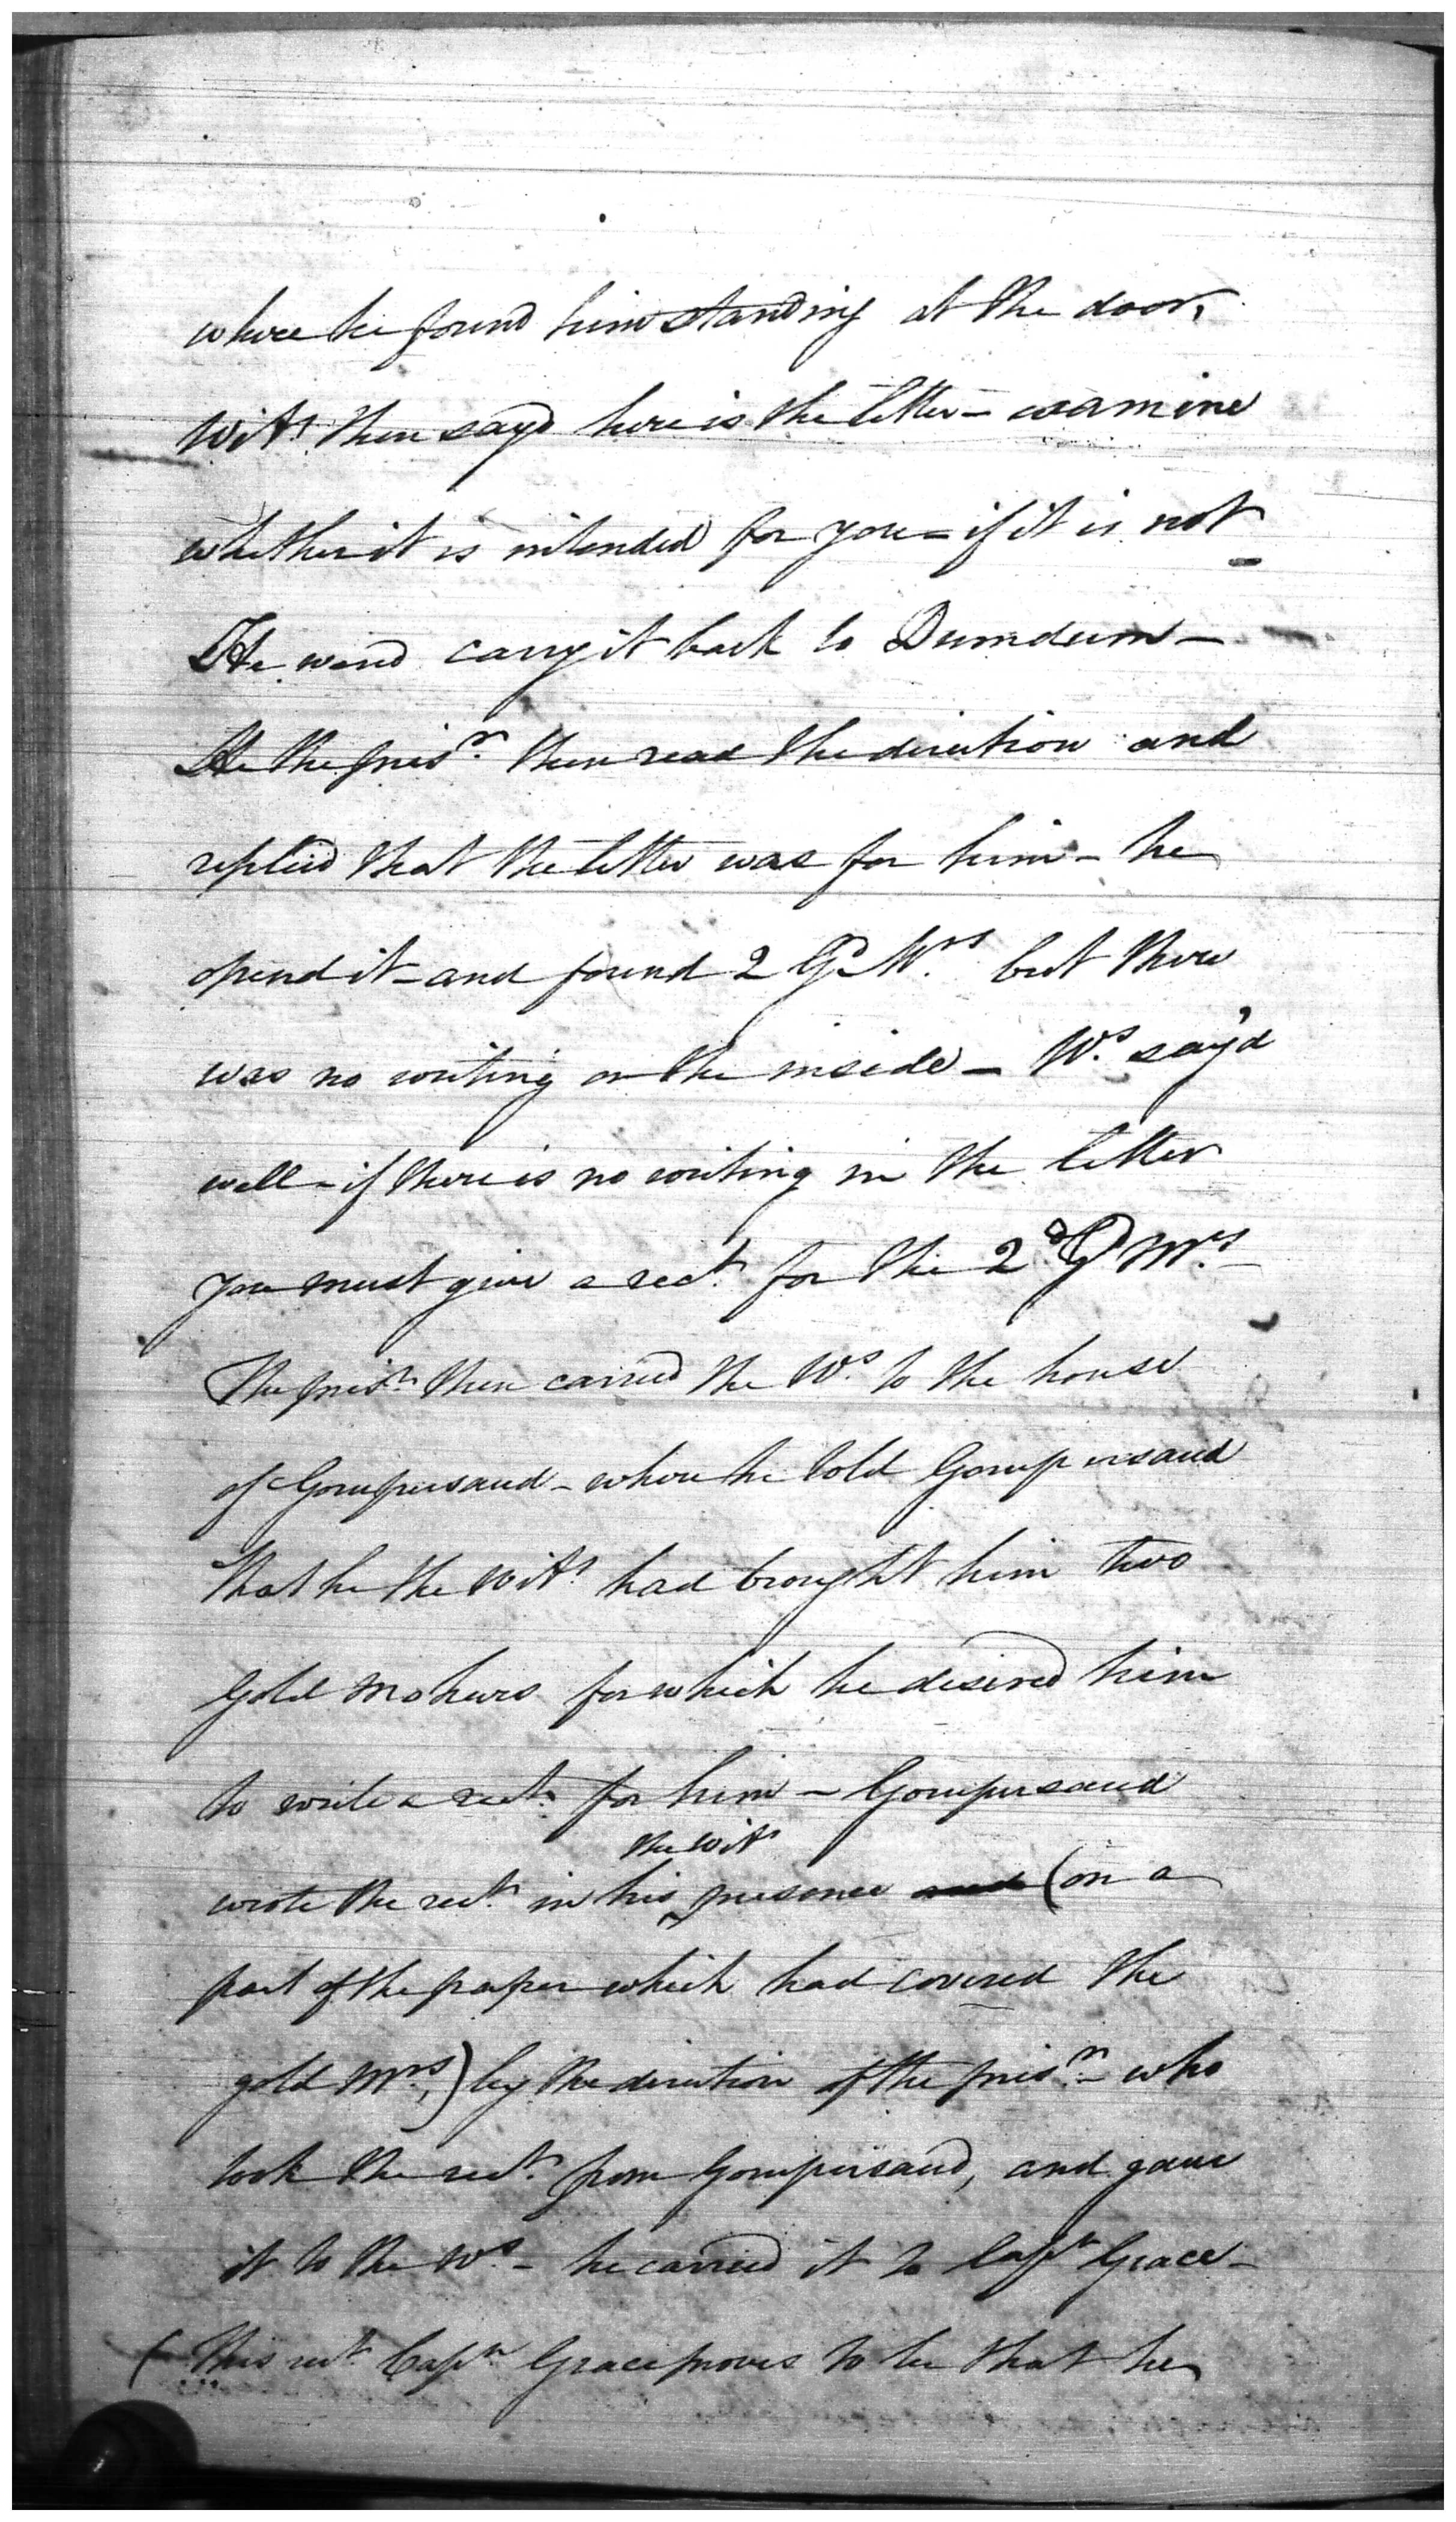 where he found him standing at the door,
Wits. then sayd here is the letter - examine
whether it is intended for you - if it is not
He woud carry it back to Dumdum -
He the prisr. then read the direction and
replied that the letter was for him - he
opend it - and found 2 Gd. Mrs. but there
was no writing on the inside - Ws. say'd
well - if there is no writing in the letter
you must give a rect. for the 2 Gd Mrs. -
The prisr. then carried the Ws. to the house
of Gourpersaud - where he told Gourpersaud
that he the Wits. had brought him two
Gold Mohurs for which he desired him
to write a rect. for him - Gourpersaud
the Wits
wrote the rect. in his presence (on a
part of the paper which had covered the
gold Mrs.) by the direction of the prisr. - who
took the rect. from Gourpersaud, and gave
it to the Ws. - he carried it to Captn Grace -
(This rect. Captn Grace proves to be that he